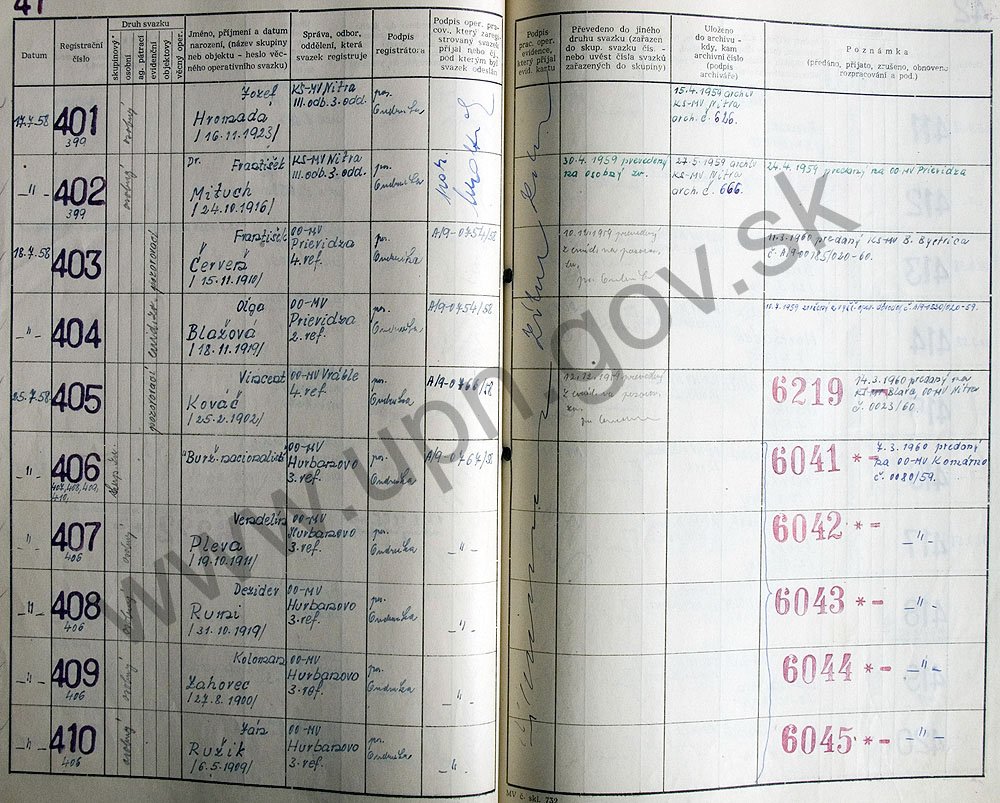 41
Datum
Registrační číslo
Druh svazku
skupinový*
osobní
ag. pátrací
evidenční
objektový
věcný oper.
Jméno, příjmení a datum
narození, (název skupiny
neb objektu - heslo věc-
ného operativního svazku)
Správa, odbor,
oddělení, která
svazek registruje
Podpis
registrátora
Podpis oper. pra-
cov., který zaregi-
strovaný svazek
přijal nebo čj.
pod kterým byl
svazek odeslán
Podpis
prac. oper.
evidence,
který přijal
evid. kartu
Převedeno do jiného
druhu svazku (zařazen
do skup. svazku čís. -
nebo uvést čísla svazků
zařazených do skupiny)
Uloženo
do archivu -
kdy, kam
archivní číslo
(podpis
archiváře)
Poznámka
(předáno, přijato, zrušeno, obnoveno
rozpracování a pod.)
17.7.58
401
399
osobný
Jozef
Hromada
/16.11.1923/
KS-MV Nitra
III.odb. 3.odd.
por.
Ondruška
15.4.1959 archiv
KS-MV Nitra
arch. č. 626.
-"-
402
399
osobný
Dr. František
Mituch
/24.10.1916/
KS-MV Nitra
III.odb. 3.odd.
por.
Ondruška
30.4.1959 prevedený
na osobný zv.
27.5.1959 archiv
KS-MV Nitra
arch. č. 666.
24.4.1959 predaný na OO-MV Prievidza
18.7.58
403
pozorovací
František
Červeň
/15.11.1910/
OO-MV
Prievidza
4.ref.
por.
Ondruška
A/9-0754/58
11.3.1960 predaný KS-MV B. Bystrica
č. A/9-00185/020-60.
-"-
404
Oľga
Blažová
/18.11.1919/
OO-MV
Prievidza
2.ref.
por.
Ondruška
A/9-0754/58
25.7.58
405
pozorovací
Vincent
Kováč
/25.2.1902/
OO-MV Vráble
4.ref.
por.
Ondruška
A/9-0766/58
6219 -
14.3.1960 predaný na
OO-MV Nitra
č. 0023/60.
-"-
406
407, 408, 409,
410.
"Burž. nacionalisti"
OO-MV
Hurbanovo
3.ref.
por.
Ondruška
A/9-0767/58
6041 * -
7.3.1960 predaný
na OO-MV Komárno
č. 0080/59.
-"-
407
406
osobný
Vendelín
Pleva
/19.10.1911/
OO-MV
Hurbanovo
3.ref.
por.
Ondruška
-"-
6042 * -
-"-
-"-
408
406
osobný
Dezider
Rumi
/31.10.1919/
OO-MV
Hurbanovo
3.ref.
por.
Ondruška
-"-
6043 * -
-"-
-"-
409
406
osobný
Koloman
Zahorec
/27.8.1900/
OO-MV
Hurbanovo
3.ref.
por.
Ondruška
-"-
6044 * -
-"-
-"-
410
406
osobný
Ján
Ružik
/6.5.1909/
OO-MV
Hurbanovo
3.ref.
por.
Ondruška
-"-
6045 * -
-"-
MV č. skl. 732
www.upn.gov.sk